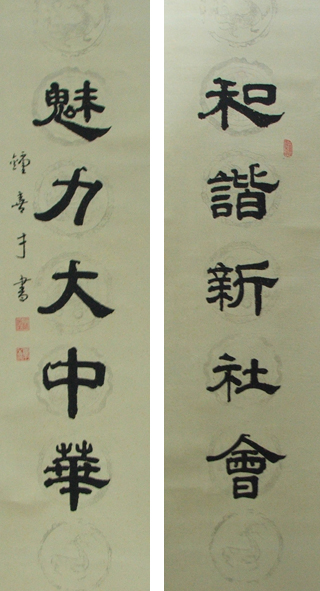 和諧新社會
魅力大中華
鍾喜才書